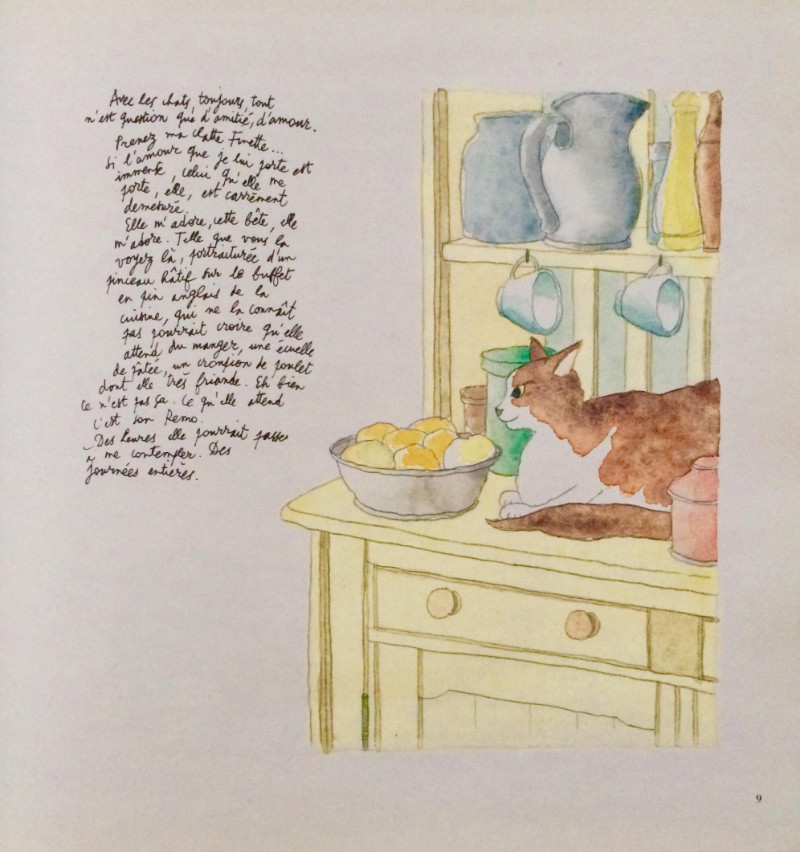 Avec les chats, toujours, tout
n'est question que d'amitié, d'amour.
Prenez ma chatte Finette...
Si l'amour que je lui porte est
immense, celui qu'elle me
porte, elle, est carrément
démesuré.
Elle m'adore, cette bête, elle
m'adore. Telle que vous la
voyez là, portraiturée d'un
pinceau hâtif sur le buffet
en pin anglais de la
cuisine, qui ne la connaît
pas pourrait croire qu'elle
attend du manger, une écuelle
de pâtée, un croupion de poulet
dont elle très friande. Eh bien
ce n'est pas ça. Ce qu'elle attend
c'est son Remo.
Des heures elle pourrait passer
à me contempler. Des
journées entières.
9